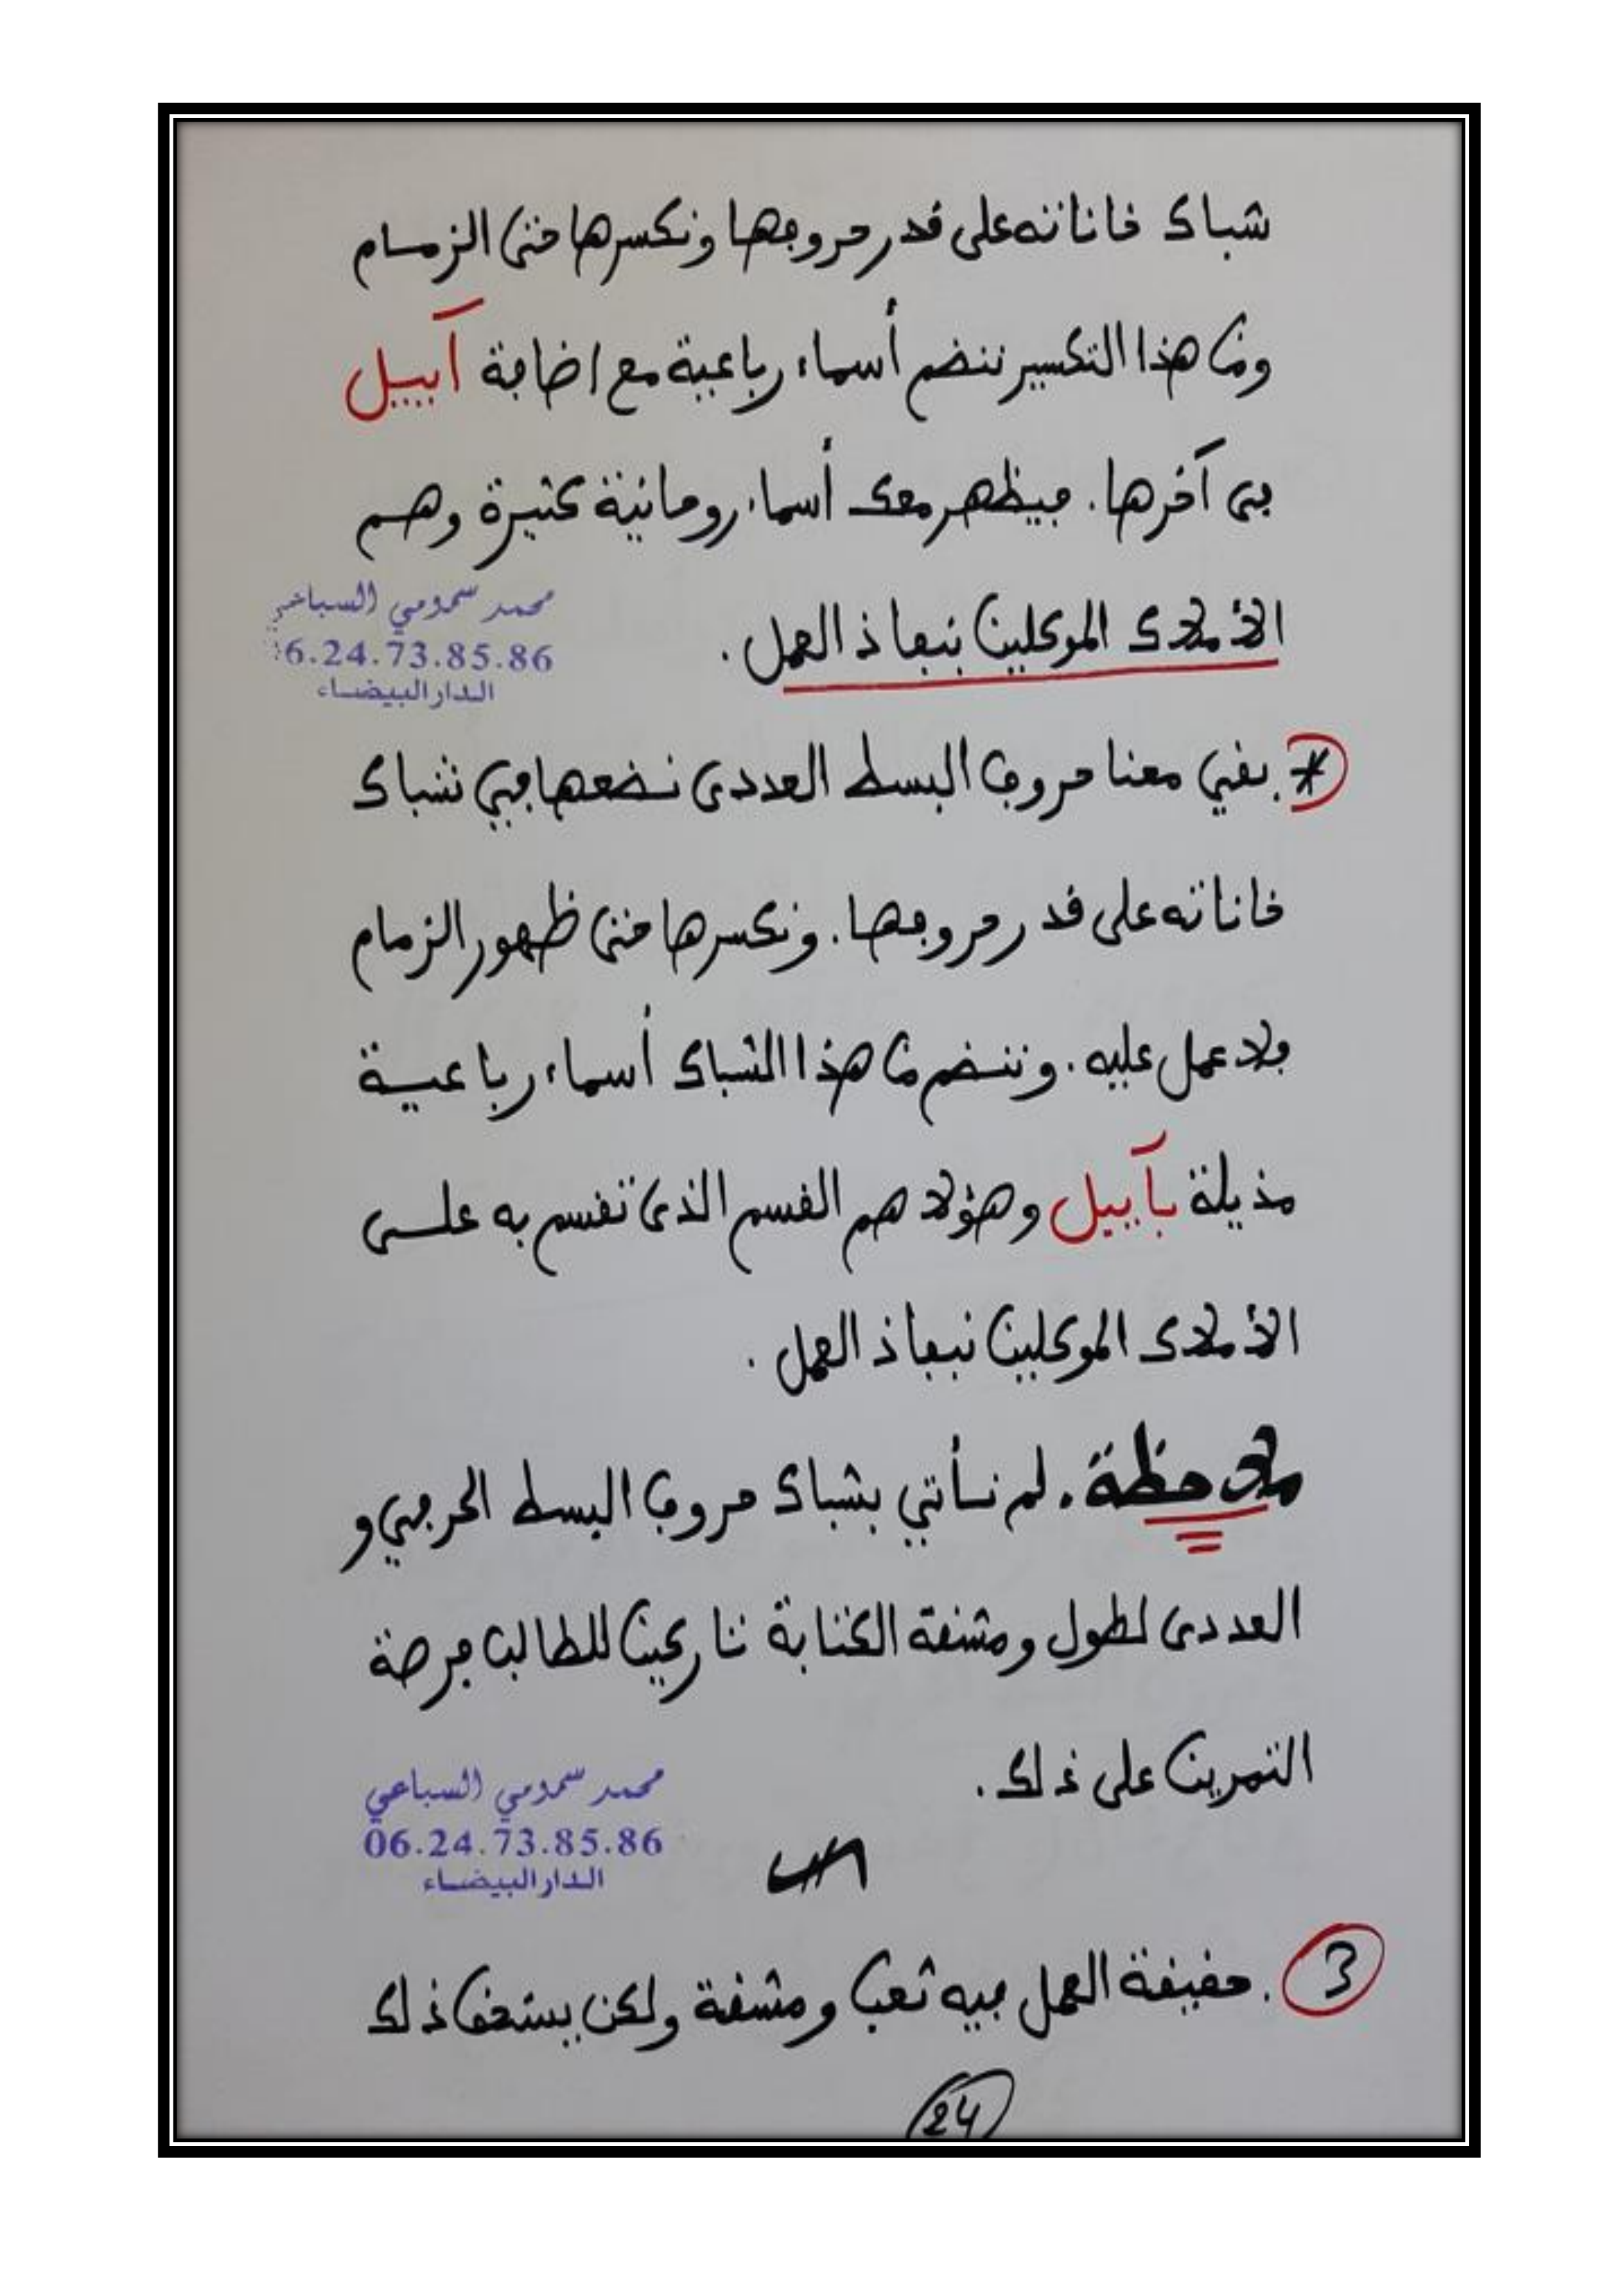 شباك خاناته على قدر حروفها ونكسرها حتى الزمام
ومن هذا التكسير ننضم أسماء رباعية مع اضافة آييل
في آخرها. فيظهر معك أسماء روحانية كثيرة وهم
الأملاك الموكلين بنفاذ العمل.
محمد سمومي السباعي
6.24.73.85.86
الدار البيضاء
* بقي معنا حروف البسط العددى نضعها في شباك
خاناته على قدر حروفها. ونكسرها حتى ظهور الزمام
ولا عمل عليه. وننضم من هذا الشباك أسماء رباعية
مذيلة بآييل وهؤلا هم القسم الذى تقسم به على
الأملاك الموكلين بنفاذ العمل.
ملاحظة. لم نأتي بشباك حروف البسط الحرفي و
العددى لطول ومشقة الكتابة تاركين للطالب فرصة
التمرين على ذلك.
محمد سمومي السباعي
06.24.73.85.86
الدار البيضاء
3. حقيقة العمل فيه تعب ومشقة ولكن يستحق ذلك
24